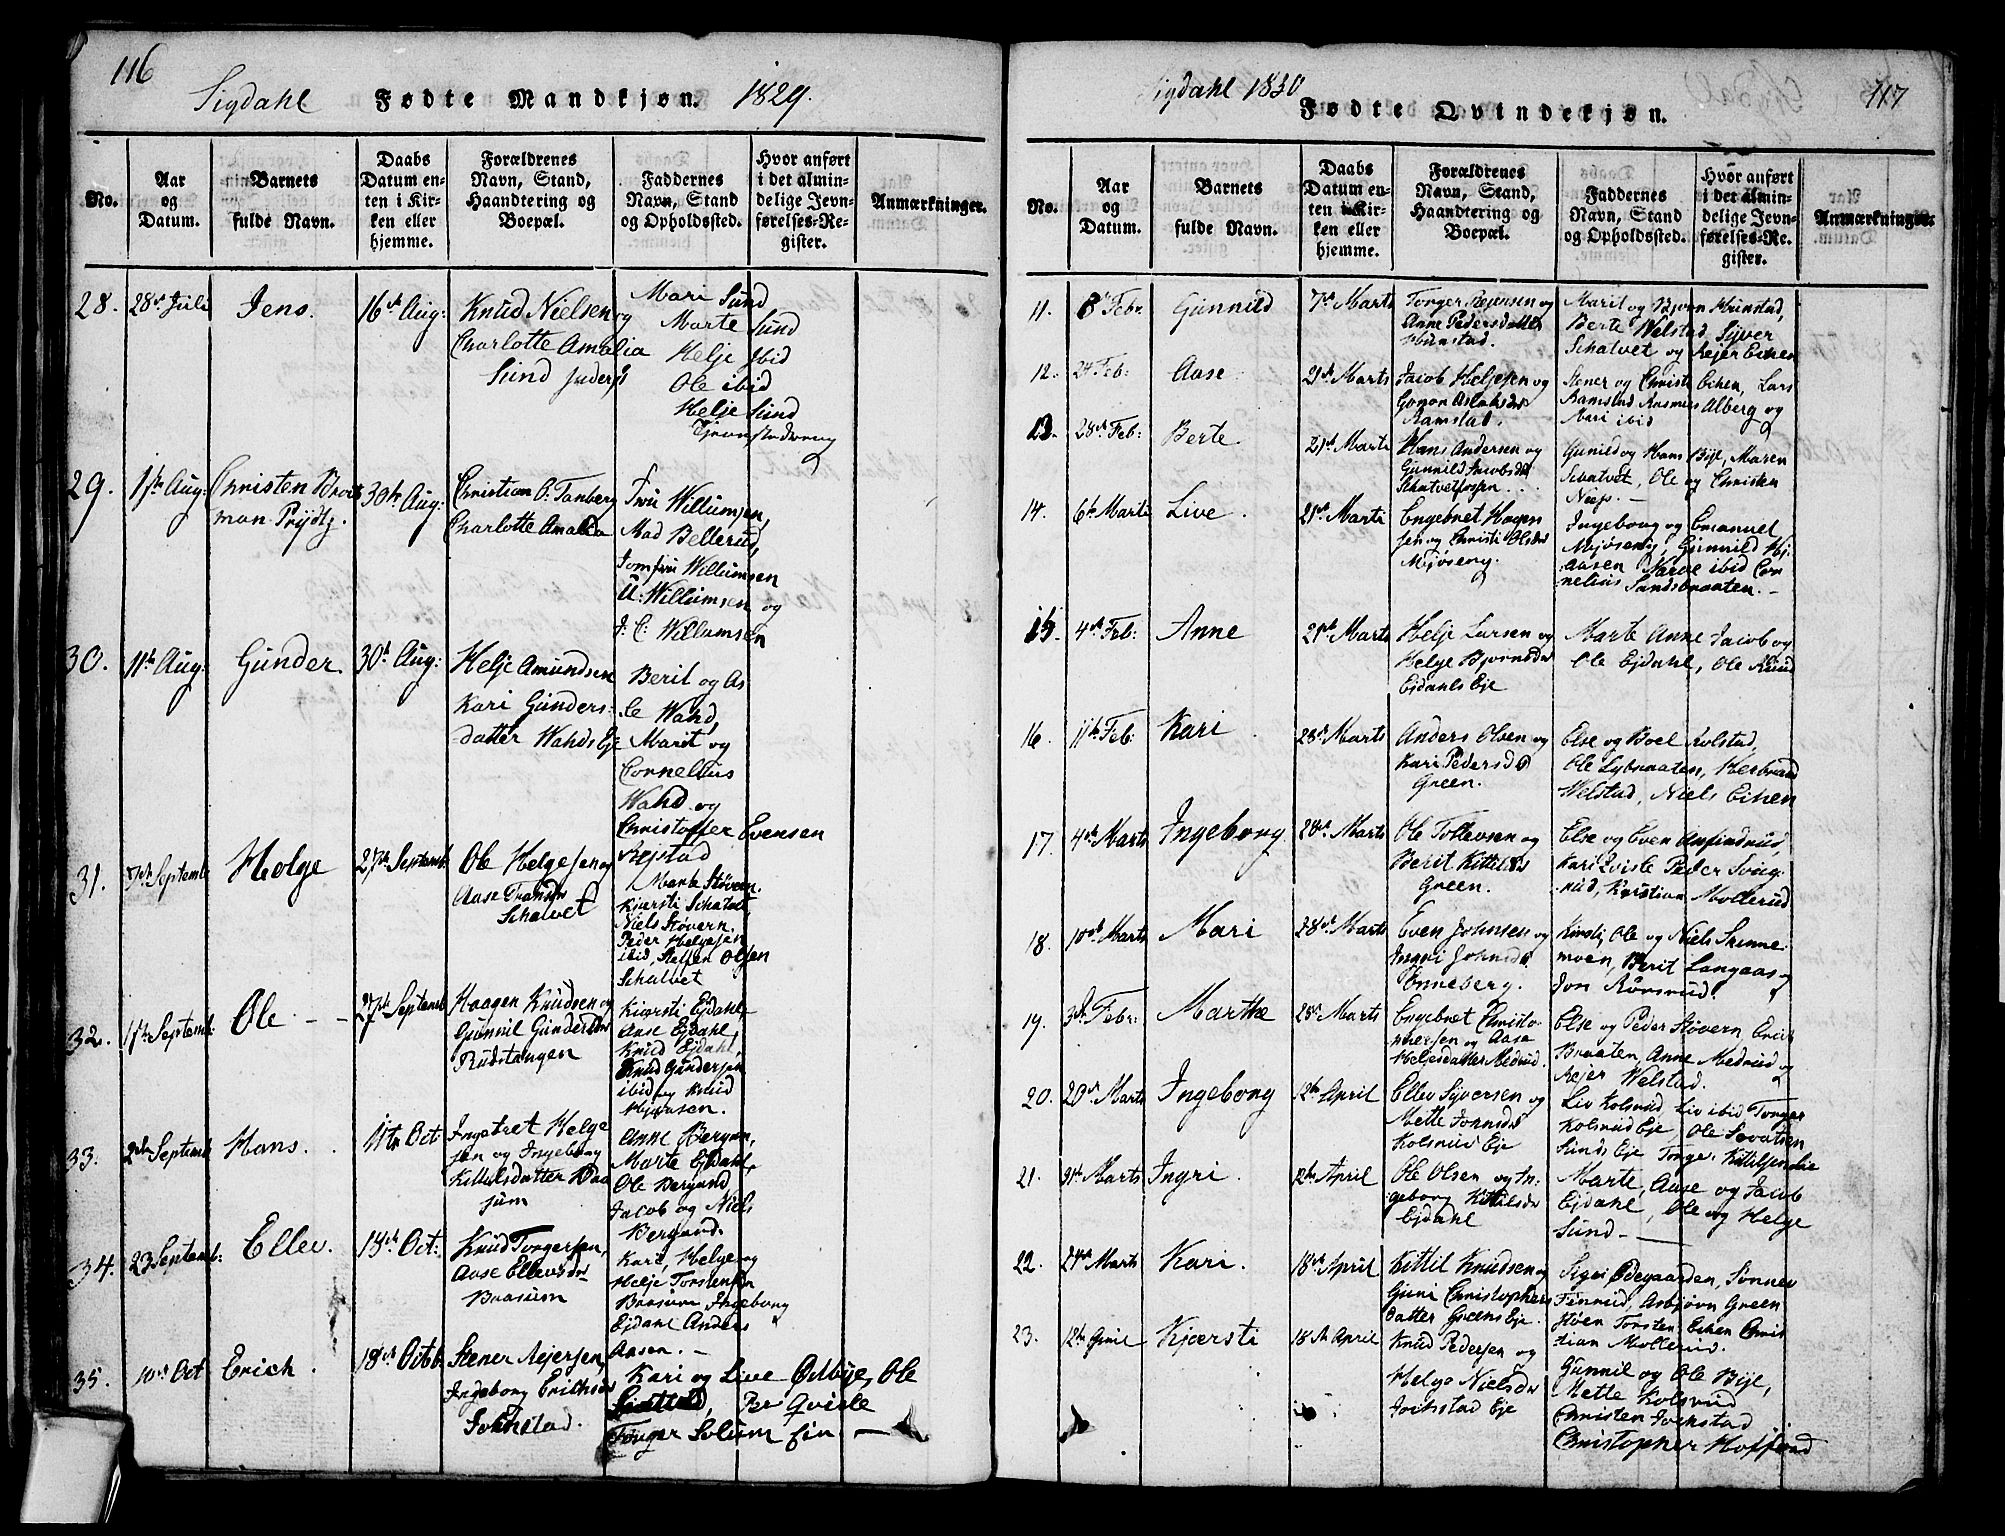 116
Sigdahl Fødte Mandkjøn. 1829.
No.
Aar
og
Datum.
Barnets
fulde Navn.
Daabs
Datum en-
ten i Kir-
ken eller
hjemme.
Forældrenes
Navn, Stand,
Haandtering og
Boepæl.
Faddernes
Navn, Stand
og Opholdssted.
Hvor anført
i det almin-
delige Jevn-
førelses-Re-
gister.
Anmærkninger.
28.
28de Juli
Jens.
16de Aug:
Knud Nielsen og
Charlotte Amalia
Sund
Mari Sund
Marte Sund
Helje ibid
Ole ibid
Helje Sund
29.
1ste Aug:
Christen
man Prydtz.
30te Aug:
Christian O: Tanberg
Charlotte Amalia
Fru Willumsen,
Mad Bellerud,
Jomfru Willumsen
U: Willumsen og
J. C: Willumsen
30.
11te Aug:
Gunder
30te Aug:
Helje Amundsen
Kari Gunders-
datter Wahds Eje
Berit og As-
le Wahd,
Marit og
Cornelius
Wahd og
Christoffer Evensen
Rejstad
31.
7de Septembr
Helge
27de Septembr
Ole Helgesen og
Aase
Schalvet
Marte Støvern.
Kjersti Schalvet,
Niels Støvern.
Peder Helgesen
ibid, Steffen Olsen
Schalvet
32.
11te Septembr:
Ole. — —
27de Septembr
Haagen Knudsen og
Gunnil Gundersdr
Rudstangen
Kiersti Ejdahl
Aase Ejdahl,
Knud Ejdahl,
Knud Gundersen
ibid og Knud
Hjaasen.
33.
2de Septembr
Hans.
11te Oct
Helge
sen og Ingeborg
Kittilsdatter Baa
sum
Anne Bergan,
Marte Ejdahl,
Ole Bergand
Jacob og Niels
Bergand.
34.
23 Septembr:
Ellev.
18de Oct:
Knud Torgersen,
Aase Ellevsdr
Baasum
Kari, Helge og
Helje Torstensen
Baasum Ingeborg
Ejdahl Anders
Aasen. —
35.
10de Oct
Erich.
18de Octb
Stener Rejersen,
Ingeborg Erichsdr
Jokstad.
Kari og Live Ødbye, Ole
Per Qvisle
Torger Solum —
117
Sigdahl 1830
Fødte Qvindekjøn.
No.
Aar
og
Datum.
Barnets
fulde Navn.
Daabs
Datum en-
ten i Kir-
ken eller
hjemme.
Forældrenes
Navn, Stand,
Haandtering og
Boepæl.
Faddernes
Navn, Stand
og Opholdssted.
Hvor anført
i det almin-
delige Jevn-
førelses-Re-
gister.
Anmærkninger.
11.
8de Febr.
Gunnild
7de Marts
Torger Rejersen og
Anne Pedersdatter
Hunstad.
Marit og Bjørn Hunstad,
Berte Welstad, Syver
Schalvet og Rejer Eken
12.
24 Feb:
Aase
21de Marts
Jacob Heljesen og
Gonor Aslaksdr
Ramstad.
Stener og Christi Eken, Lars
Ramstad Rasmus Alberg og
Mari ibid
13.
28de Feb:
Berte
21de Marts
Hans Andersen og
Gunnild Jacobsdr
Schalvetfossen
Gunild og Hans Bije, Maren
Schalvet, Ole og Christen
Næs. —
14.
6te Marts
Live.
21de Marts
Engebret Hagen
sen og Christi Olsdr
Mjøseng.
Ingeborg og Emanuel
Mjøseng, Gunnild Hj:
aasen Narve ibid Cor
nelius Sandsbraaten. —
15.
4de Feb:
Anne
21de Marts
Helje Larsen og
Helge Bjørnsdr
Ejdahls Eje
Marte Anne Jacob og
Ole Ejdahl, Ole Ruud
16.
11te Feb:
Kari
28de Marts
Anders Olsen og
Kari Pedersdr
Green.
Else og Boel Kolstad,
Ole Lybraaten, Herbrand
Welstad, Niels Eken
17.
4de Marts
Ingeborg
28de Marts
Ole Tollevsen og
Berit Kittilsdr
Green.
Else og Even Anfindrud,
Kari Qvisle Peder
rud, Kristian Mollerud
18.
10de Marts
Mari
28de Marts
Even Johnsen og
Ingri Johnsdr
Enneberg.
Kirsti, Ole og Niels Skinne
moen, Berit Langaas og
Jon Rørsrud.
19.
3de Febr:
Marthe
28de Marts
Engebret Christo-
phersen og Aase
Heljedatter Medrud.
Else og Peder Støvern, Erich
Braaten, Anne Medrud og
Rejer Welstad.
20.
20de Marts
Ingeborg
12te April
Ellev Syversen og
Mette Jonsdr
Kolsrud Eje
Liv Kolsrud, Liv ibid Torger
Kolsrud Eje, Ole
Sunds Eje Torger Kittilsen
21.
31te Marts
Ingri.
12te April
Ole Olsen og In-
geborg Kittilsdr
Ejdahl
Marte, Aase og Jacob
Ejdahl, Ole og Helge
Sund —
22.
24de Marts
Kari.
18de April
Kittil Knudsen og
Guri Christophers
datter Greens Eje.
Sigri Ødegaarden, Sønnev
Finrud, Asbjørn Green
Høen Torsten Eken Chris
tian Mollerud.
23.
12te April
Kjersti
18de April
Knud Pedersen og
Helga Nielsdr
Jochstad Eje
Gunnil og Ole Bije,
Mette Kolsrud
Christen Jochstad
Christopher Hoffland